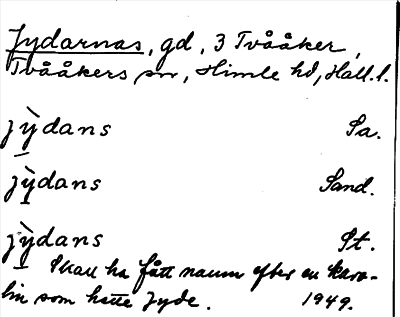 Jydarnas, gd, 3 Tvååker,
Tvååkers sn, Himle hd, Hall. l.
jỳdans Sa.
jỳdans Sand.
jỳdans St.
Skall ha fått namn efter en karo-
lin som hette Jyde. 1949.